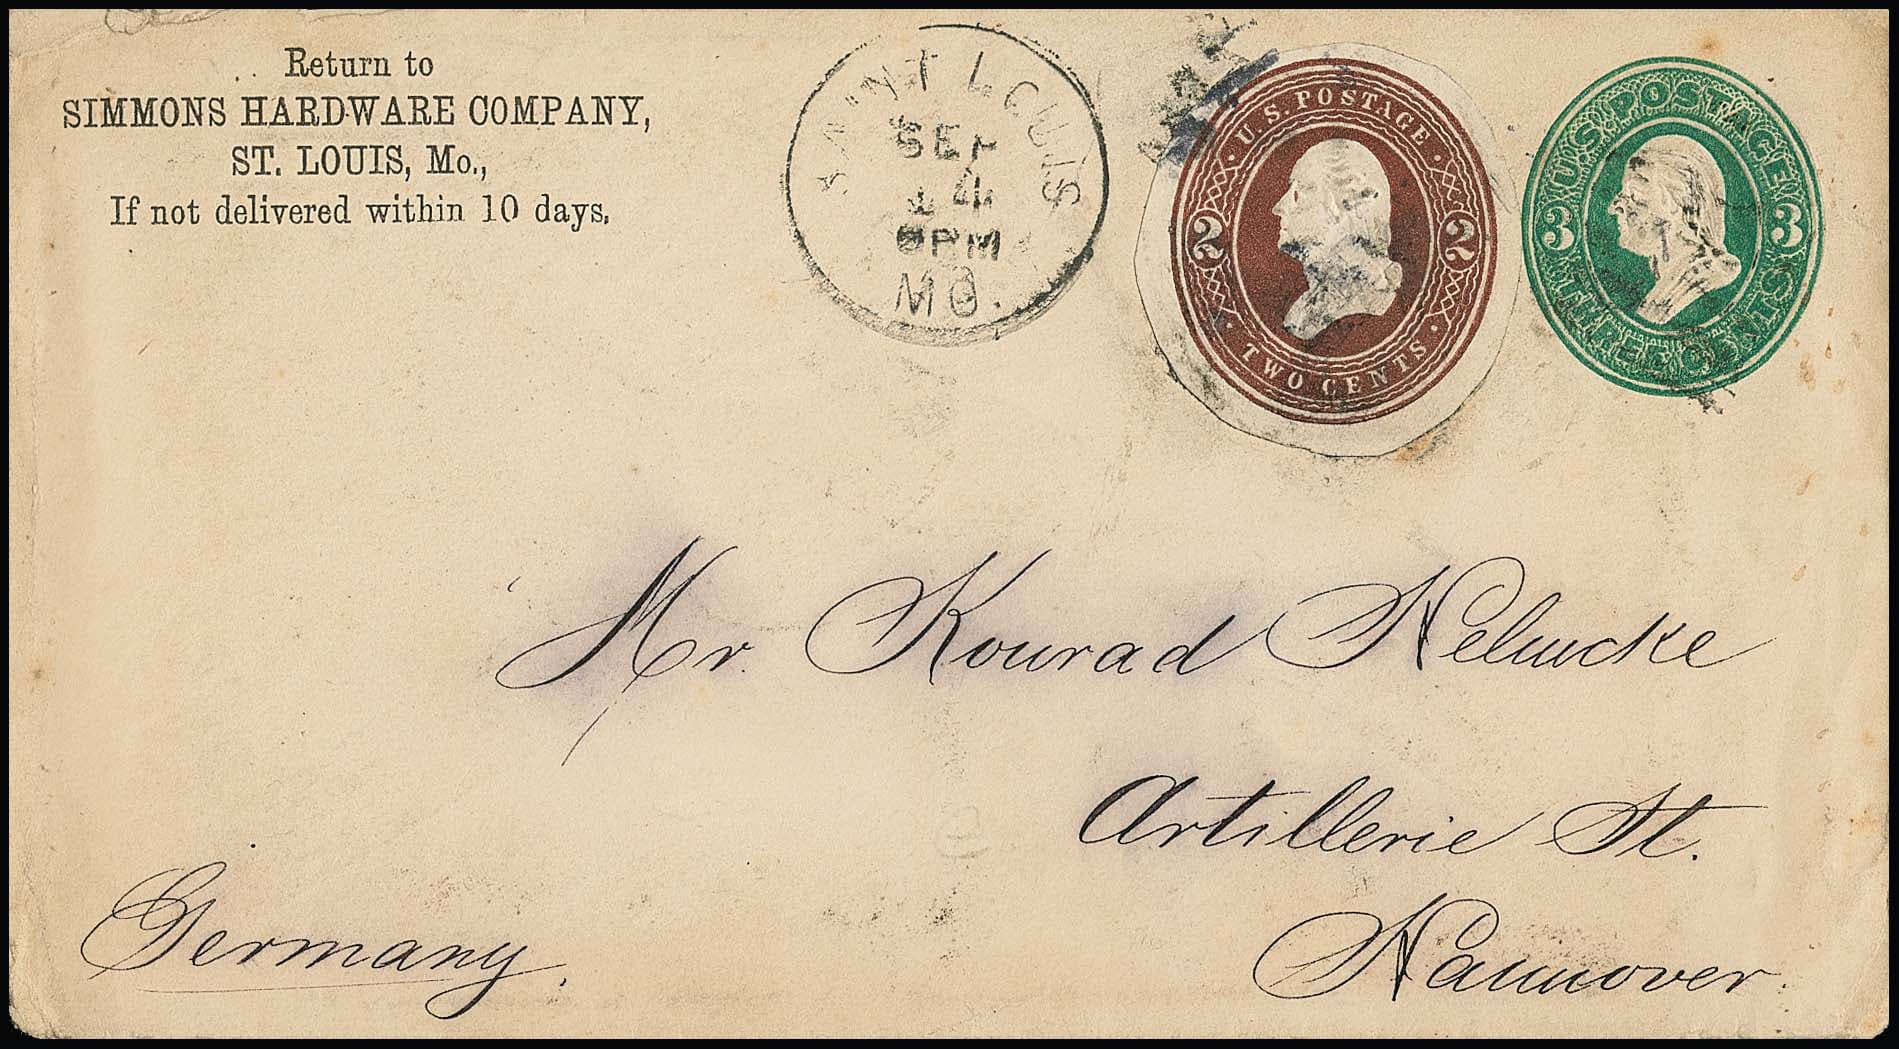 Return to
SIMMONS HARDWARE COMPANY,
ST. LOUIS, Mo.,
If not delivered within 10 days.
SAINT LOUIS
SEP
14
PM
MO.
U.S. POSTAGE
2 2
TWO CENTS
U.S. POSTAGE
3 3
THREE CENTS
Mr. Konrad
Artillerie St.
Hannover.
Germany.